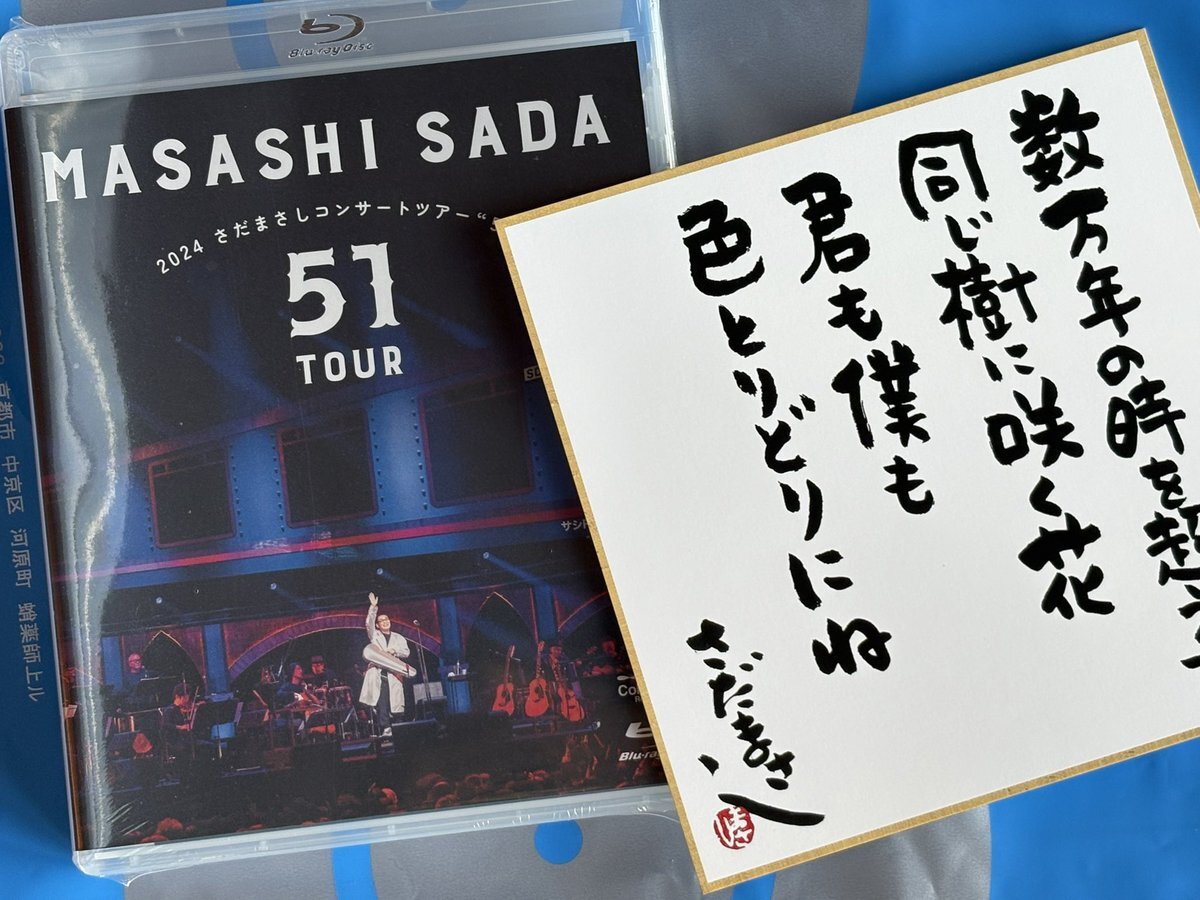 Blu-ray Disc
MASASHI SADA
2024 さだまさしコンサートツアー“
51
TOUR
サシ
Blu-ray
京都市 中京区 河原町 蛸薬師上ル
数万年の時を超え
同じ樹に咲く花
君も僕も
色とりどりにね
さだまさし